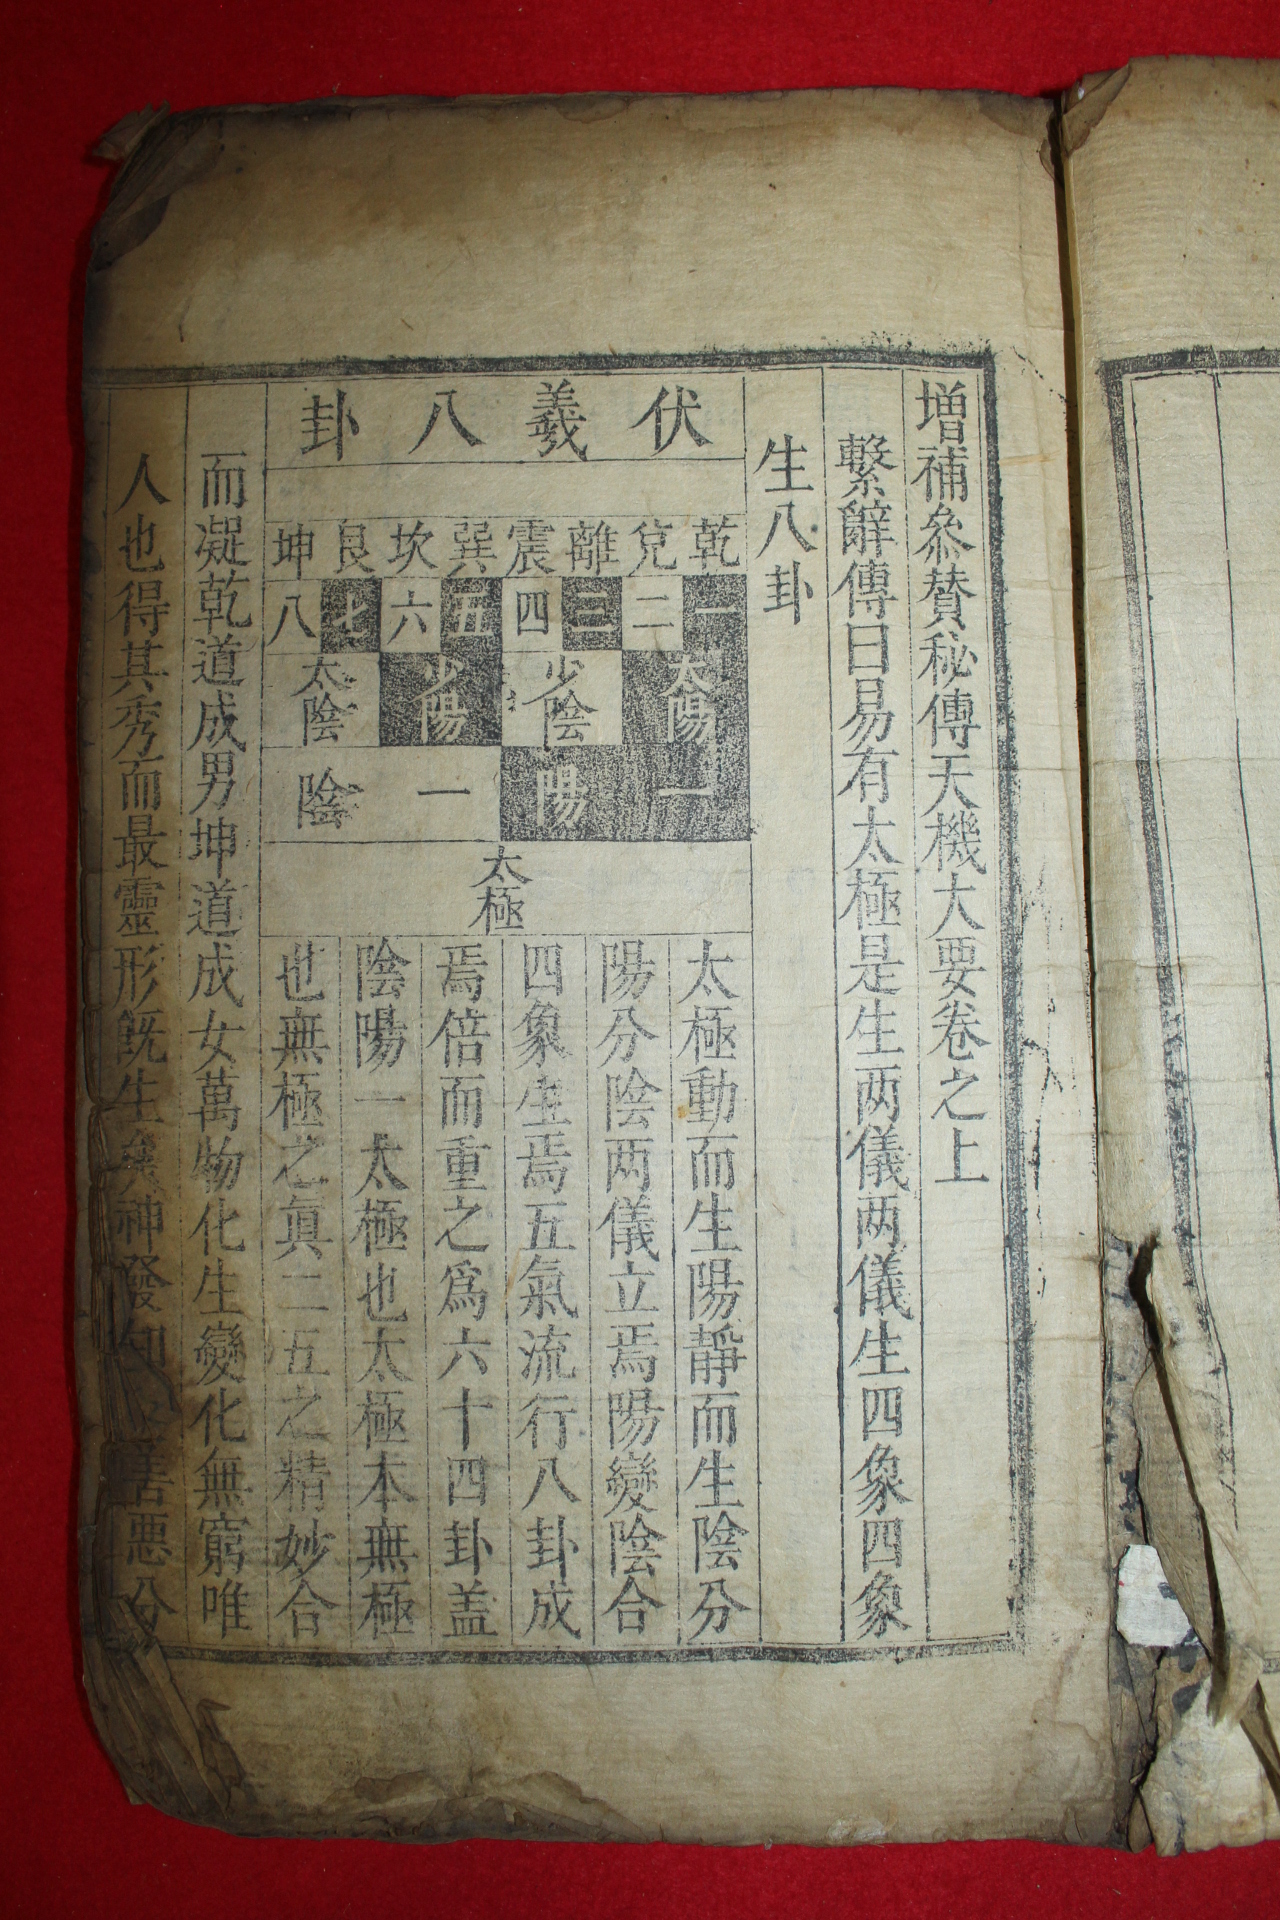 増補參賛秘傳天機大要卷之上
繫辭傳曰易有太極是生两儀两儀生四象四象
生八卦
伏羲八卦
乾兌離震巽坎艮坤
一二三四五六七八
太陽
少陰
少陽
太陰
一陽
一陰
太極
太極動而生陽靜而生陰分
陽分陰两儀立焉陽變陰合
四象生焉五氣流行八卦成
焉倍而重之爲六十四卦盖
陰陽一太極也太極本無極
也無極之眞二五之精妙合
而凝乾道成男坤道成女萬物化生變化無窮唯
人也得其秀而最靈形旣生矣神發知善悪分